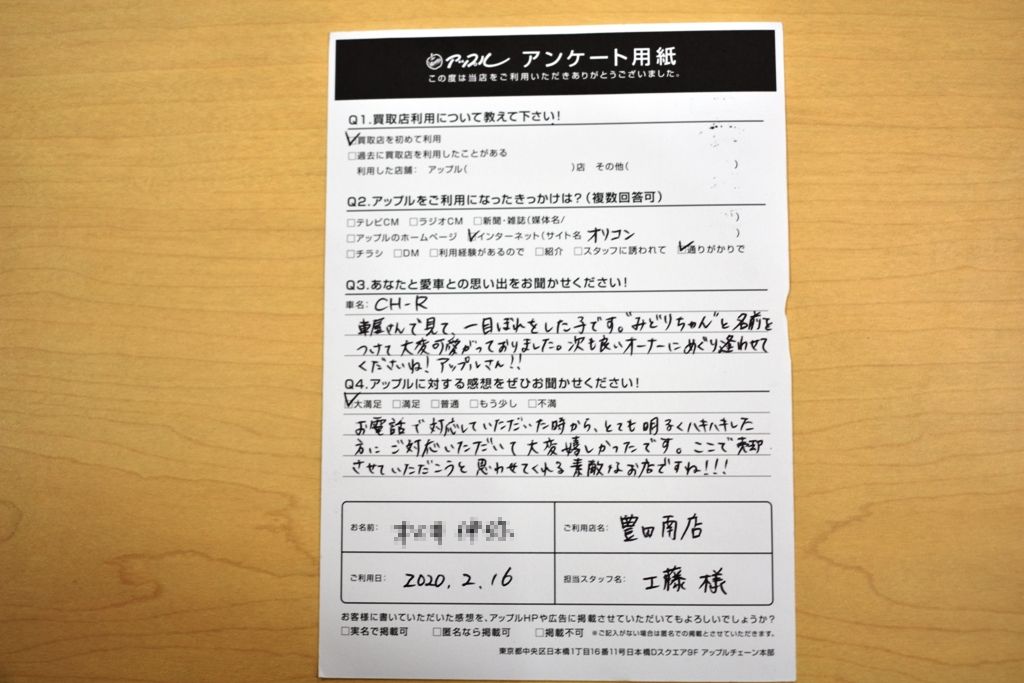 アップル アンケート用紙
この度は当店をご利用いただきありがとうございました。
Q1.買取店利用について教えて下さい!
☑買取店を初めて利用
□過去に買取店を利用したことがある
利用した店舗： アップル( )店 その他( )
Q2.アップルをご利用になったきっかけは?(複数回答可)
□テレビCM □ラジオCM □新聞・雑誌(媒体名/ )
□アップルのホームページ ☑インターネット(サイト名 オリコン )
□チラシ □DM □利用経験があるので □紹介 □スタッフに誘われて ☑通りがかりで
Q3.あなたと愛車との思い出をお聞かせください!
車名: CH-R
車屋さんで見て、一目ぼれをした子です。"みどりちゃん"と名前を
つけて大変可愛がっておりました。次も良いオーナーにめぐり逢わせて
くださいね! アップルさん!!
Q4.アップルに対する感想をぜひお聞かせください!
☑大満足 □満足 □普通 □もう少し □不満
お電話で対応していただいた時から、とても明るくハキハキした
方にご対応いただいて大変嬉しかったです。ここで売却
させていただこうと思わせてくれる素敵なお店ですね!!!
お名前: ご利用店名: 豊田南店
ご利用日: 2020.2.16 担当スタッフ名: 工藤様
お客様に書いていただいた感想を、アップルHPや広告に掲載させていただいてもよろしいでしょうか?
□実名で掲載可 □匿名なら掲載可 □掲載不可 ※ご記入がない場合は匿名での掲載とさせていただきます。
東京都中央区日本橋1丁目16番11号日本橋Dスクエア9F アップルチェーン本部